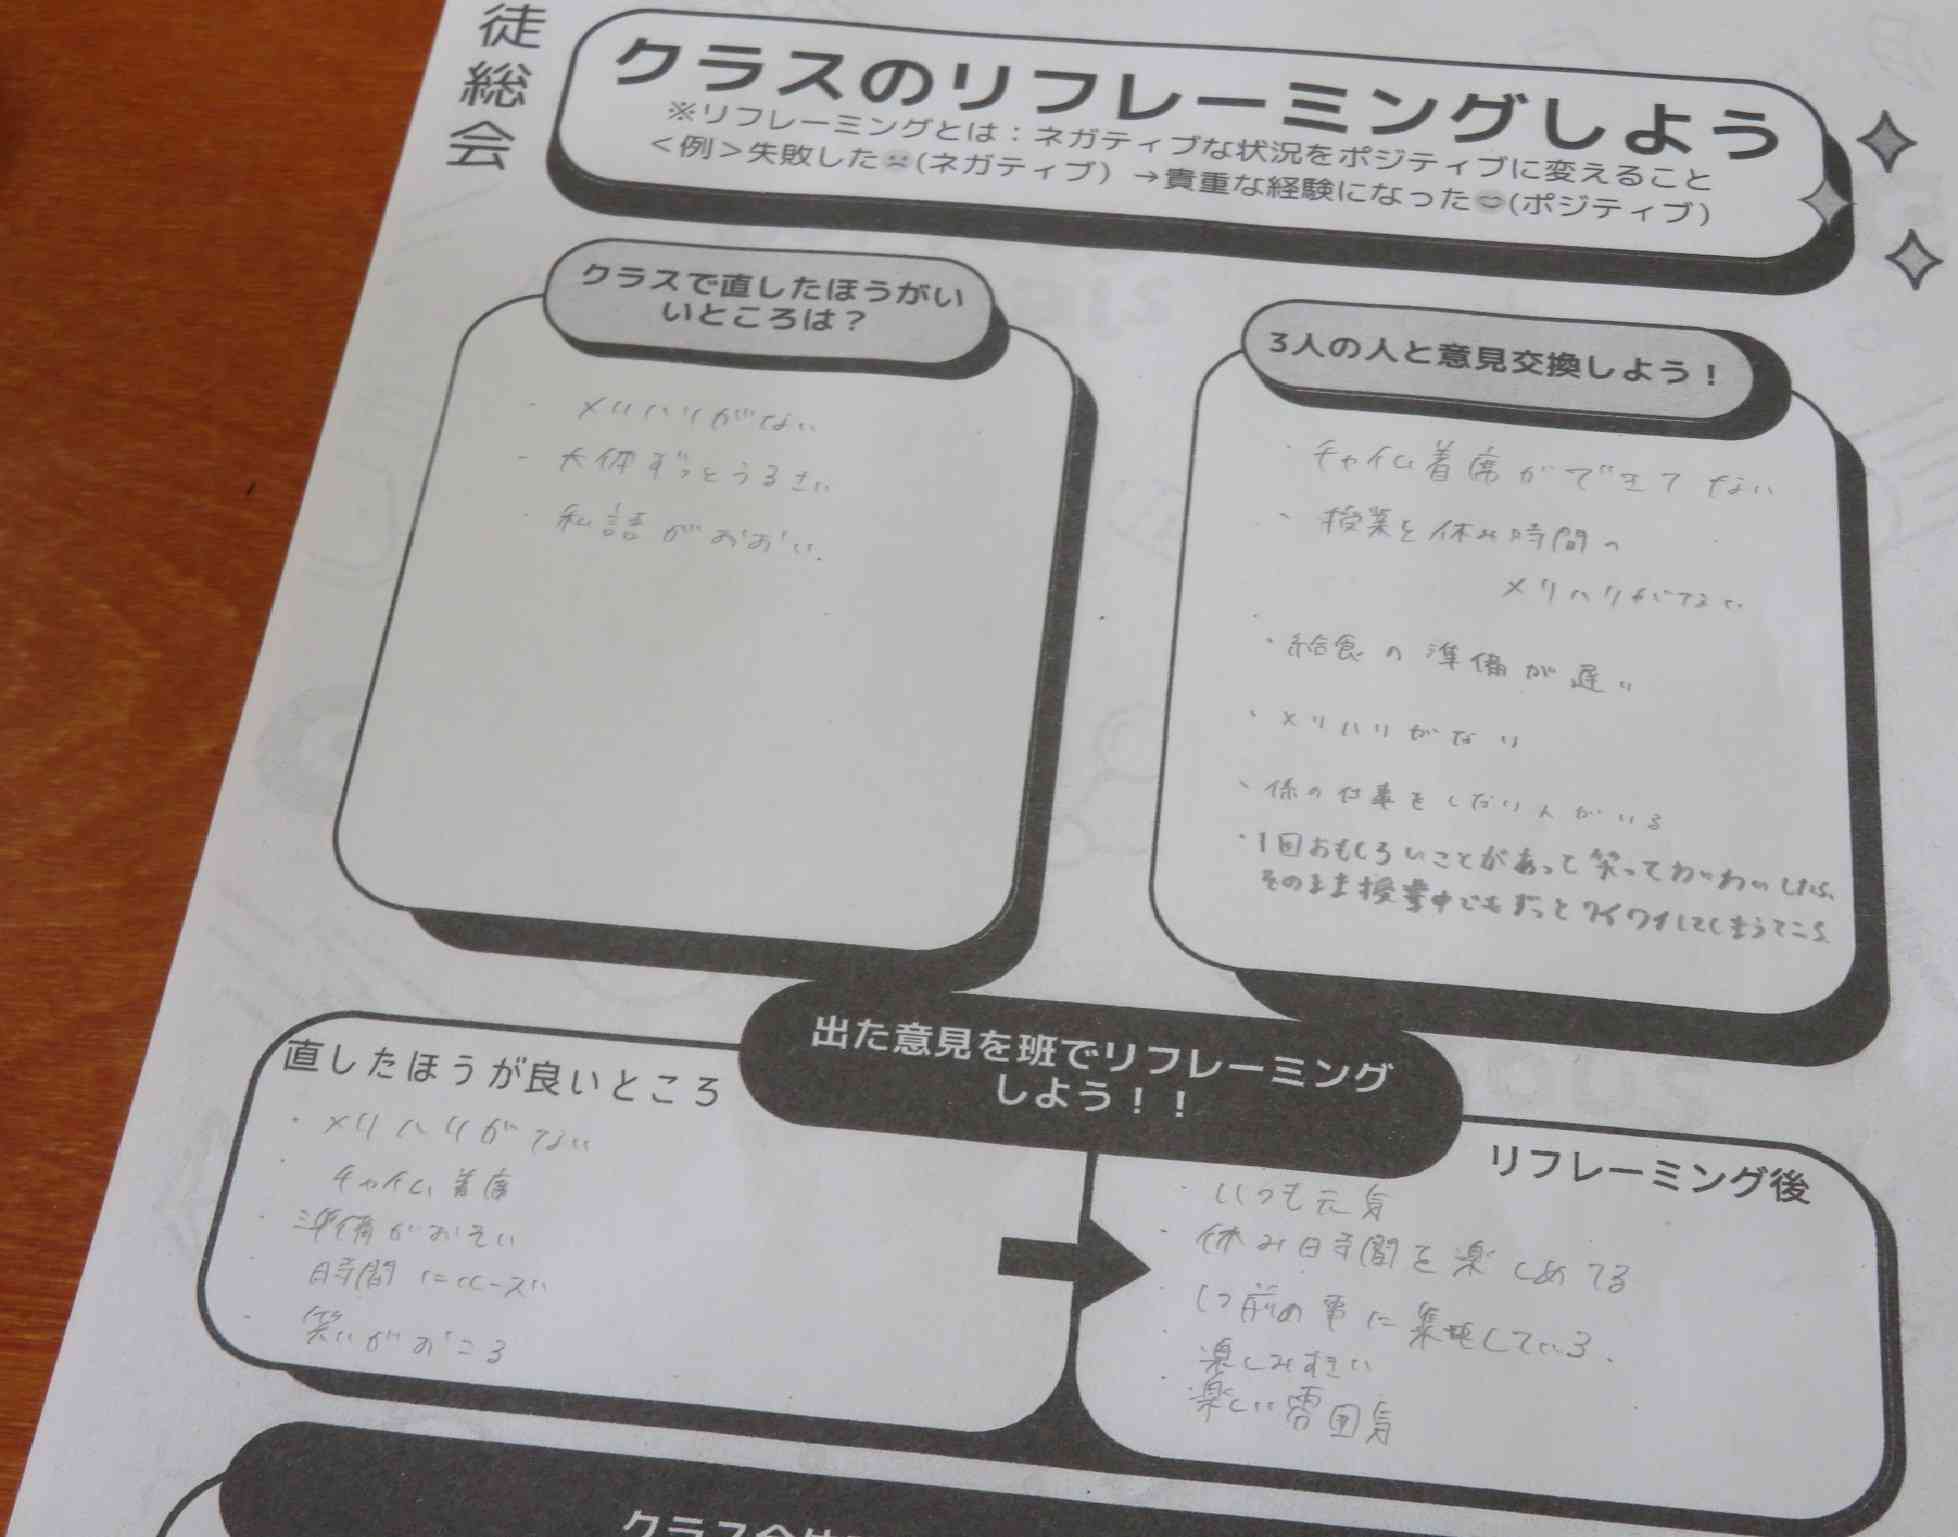 徒総会
クラスのリフレーミングしよう
※リフレーミングとは：ネガティブな状況をポジティブに変えること
＜例＞失敗した(ネガティブ）→貴重な経験になった(ポジティブ）
クラスで直したほうがい
いところは？
・メリハリがない
・大体ずっとうるさい
・私語がおおい.
3人の人と意見交換しよう！
・チャイム着席ができてない
・授業と休み時間の
メリハリがない
・給食の準備が遅い
・メリハリがない
・係の仕事をしない人がいる
・1回おもしろいことがあって笑ってわいわいしたら、
そのまま授業中でもずっとワイワイしてしまうところ
出た意見を班でリフレーミング
しよう！！
直したほうが良いところ
・メリハリがない
・チャイム着席
・準備がおそい
・時間にルーズ
・笑いがおこる
リフレーミング後
・いつも元気
・休み時間を楽しめてる
・1つ前の事に集中している.
・楽しみ
・楽しい雰囲気
クラス